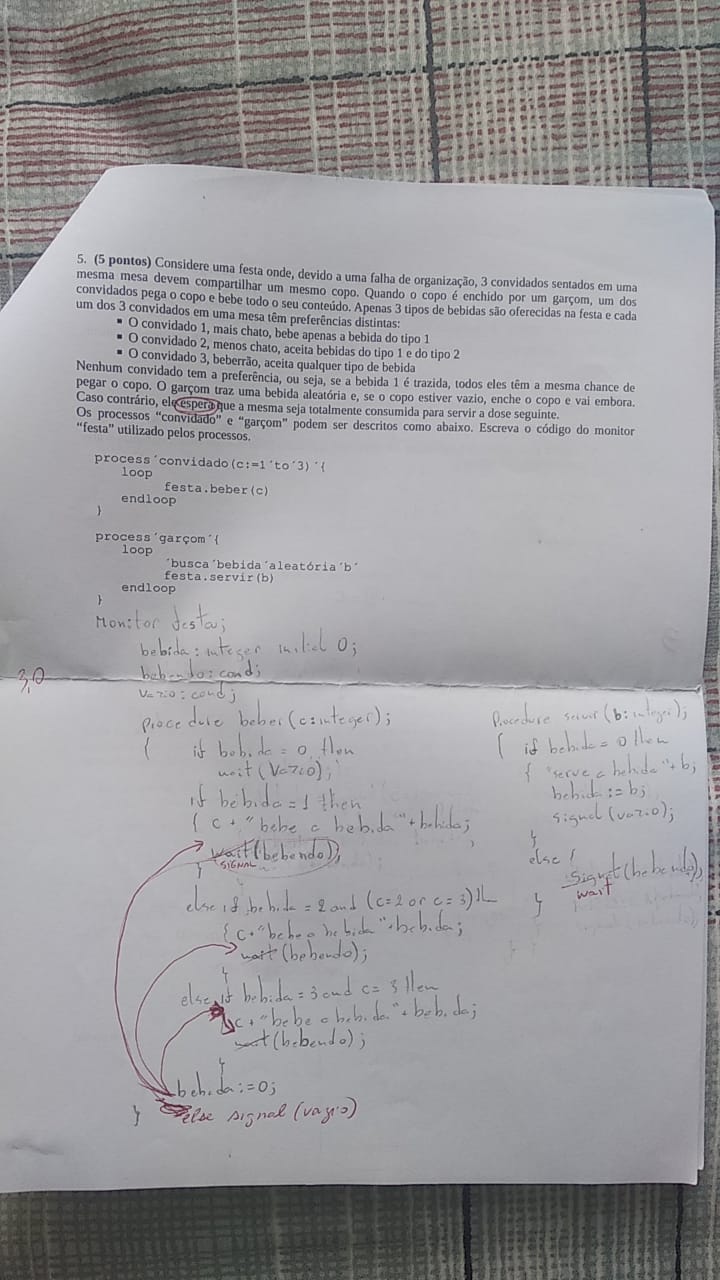 5. (5 pontos) Considere uma festa onde, devido a uma falha de organização, 3 convidados sentados em uma
mesma mesa devem compartilhar um mesmo copo. Quando o copo é enchido por um garçom, um dos
convidados pega o copo e bebe todo o seu conteúdo. Apenas 3 tipos de bebidas são oferecidas na festa e cada
um dos 3 convidados em uma mesa têm preferências distintas:
▪ O convidado 1, mais chato, bebe apenas a bebida do tipo 1
▪ O convidado 2, menos chato, aceita bebidas do tipo 1 e do tipo 2
▪ O convidado 3, beberrão, aceita qualquer tipo de bebida
Nenhum convidado tem a preferência, ou seja, se a bebida 1 é trazida, todos eles têm a mesma chance de
pegar o copo. O garçom traz uma bebida aleatória e, se o copo estiver vazio, enche o copo e vai embora.
Caso contrário, ele espera que a mesma seja totalmente consumida para servir a dose seguinte.
Os processos “convidado” e “garçom” podem ser descritos como abaixo. Escreva o código do monitor
“festa” utilizado pelos processos.
process´convidado(c:=1´to´3)´{
loop
festa.beber(c)
endloop
}
process´garçom´{
loop
´busca´bebida´aleatória´b´
festa.servir(b)
endloop
}
Monitor festa;
bebida: integer inicial 0;
bebendo: cond;
vazio: cond;
3,0
Procedure beber(c:integer);
{ if bebida = 0 then
wait(vazio);
if bebida = 1 then
{ c + "bebe a bebida" + bebida;
wait(bebendo);
SIGNAL
}
else if bebida = 2 and (c=2 or c=3) then
{ c + "bebe a bebida" + bebida;
wait(bebendo);
}
else if bebida = 3 and c = 3 then
{ c + "bebe a bebida" + bebida;
wait(bebendo);
}
bebida := 0;
} else signal (vazio)
Procedure servir(b: integer);
{ if bebida = 0 then
{ "serve a bebida" + b;
bebida := b;
signal(vazio);
}
else {
signal(bebendo);
wait
}